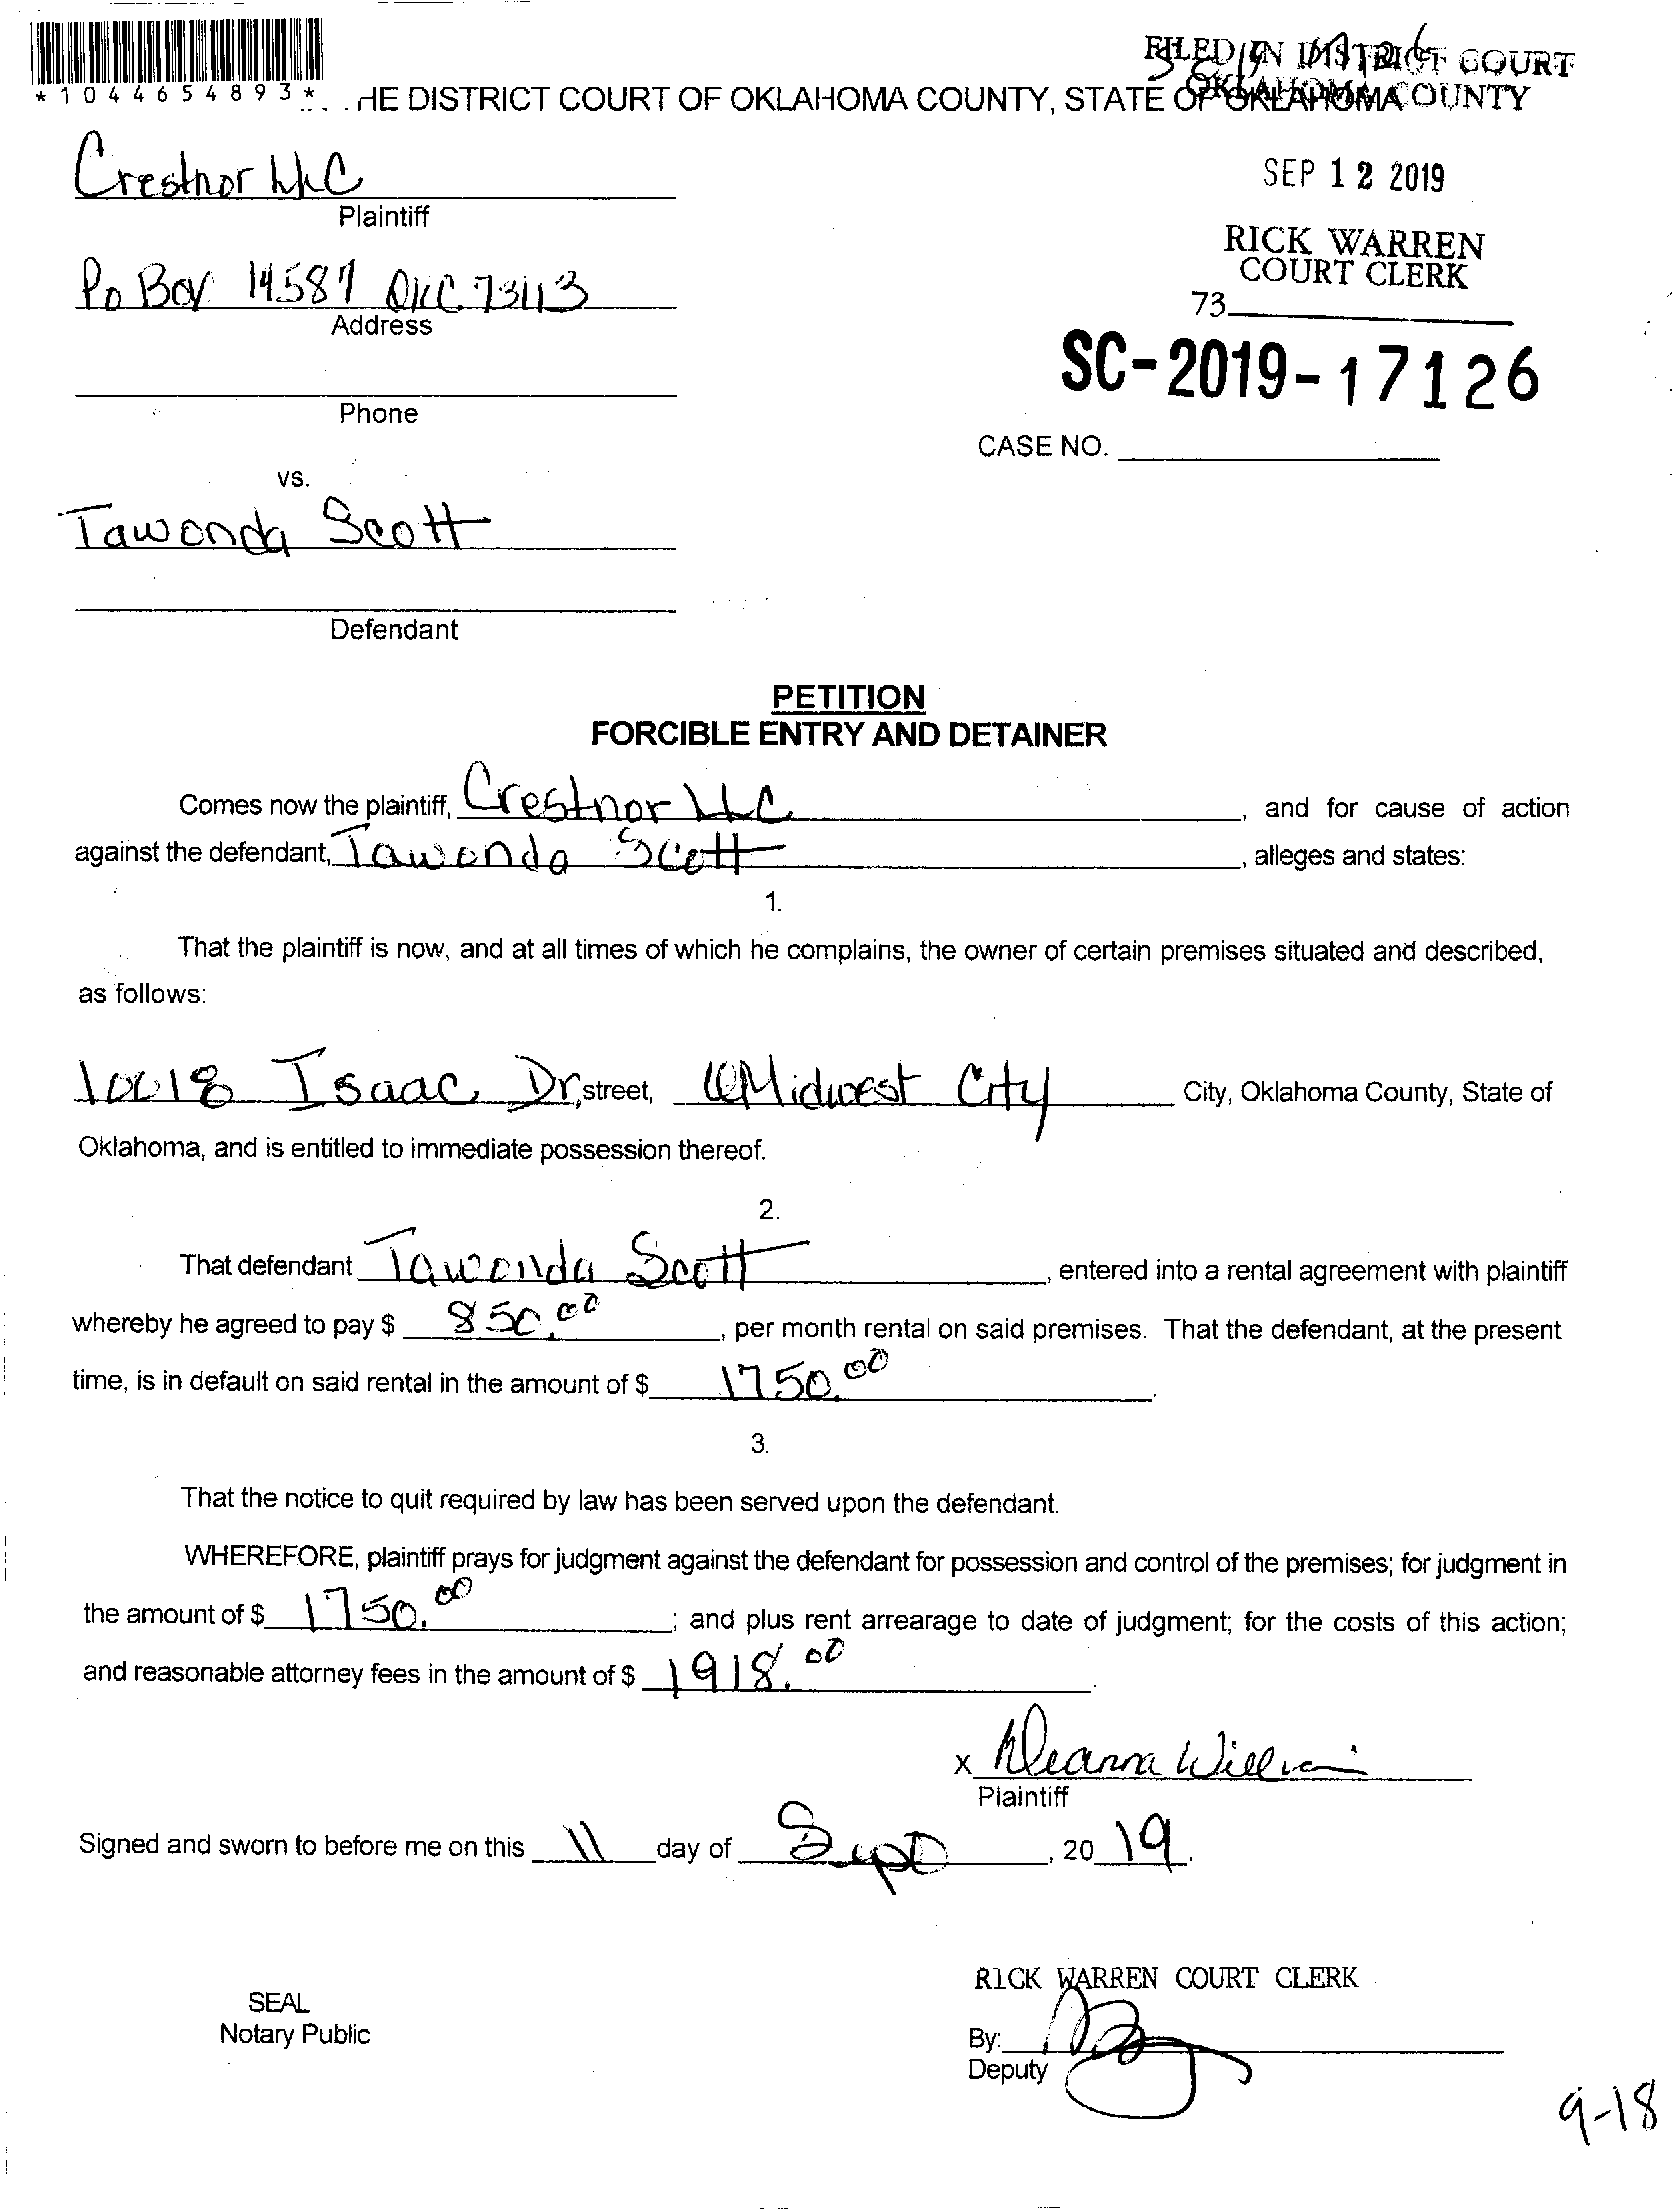 FILED IN DISTRICT COURT
OKLAHOMA COUNTY
*1044654893*
HE DISTRICT COURT OF OKLAHOMA COUNTY, STATE OF OKLAHOMA
SEP 12 2019
RICK WARREN
COURT CLERK
73
SC-2019-17126
CASE NO.
Crestnor LLC
Plaintiff
Po Box 14587 OKC 73113
Address
Phone
vs.
Tawonda Scott
Defendant
PETITION
FORCIBLE ENTRY AND DETAINER
Comes now the plaintiff, Crestnor LLC, and for cause of action
against the defendant, Tawonda Scott, alleges and states:
1.
That the plaintiff is now, and at all times of which he complains, the owner of certain premises situated and described,
as follows:
10018 Isaac Dr, street, Midwest City City, Oklahoma County, State of
Oklahoma, and is entitled to immediate possession thereof.
2.
That defendant Tawonda Scott, entered into a rental agreement with plaintiff
whereby he agreed to pay $ 850.00, per month rental on said premises. That the defendant, at the present
time, is in default on said rental in the amount of $ 1750.00.
3.
That the notice to quit required by law has been served upon the defendant.
WHEREFORE, plaintiff prays for judgment against the defendant for possession and control of the premises; for judgment in
the amount of $ 1750.00; and plus rent arrearage to date of judgment; for the costs of this action;
and reasonable attorney fees in the amount of $ 1918.00.
x Deanna William
Plaintiff
Signed and sworn to before me on this 11 day of Sept, 2019.
RICK WARREN COURT CLERK
SEAL
Notary Public
By:
Deputy
9-18